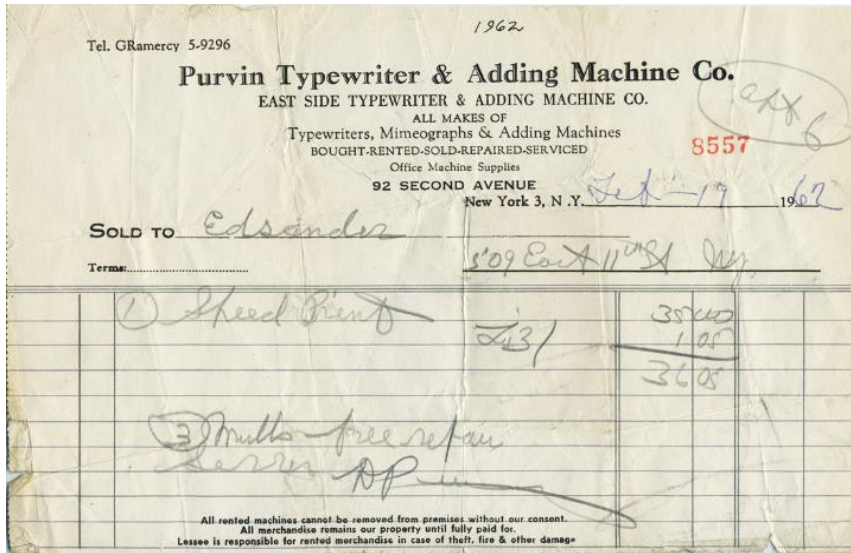 1962
Tel. GRamercy 5-9296
Purvin Typewriter & Adding Machine Co.
EAST SIDE TYPEWRITER & ADDING MACHINE CO.
apt 6
ALL MAKES OF
Typewriters, Mimeographs & Adding Machines
8557
BOUGHT-RENTED-SOLD-REPAIRED-SERVICED
Office Machine Supplies
92 SECOND AVENUE
New York 3, N. Y. 19 1962
SOLD TO Edsander
Terms: 509 East 11th St Ny.
1 Speed Print 35 00
L43 1 05
36 05
3 free repair
All rented machines cannot be removed from premises without our consent.
All merchandise remains our property until fully paid for.
Lessee is responsible for rented merchandise in case of theft, fire & other damage